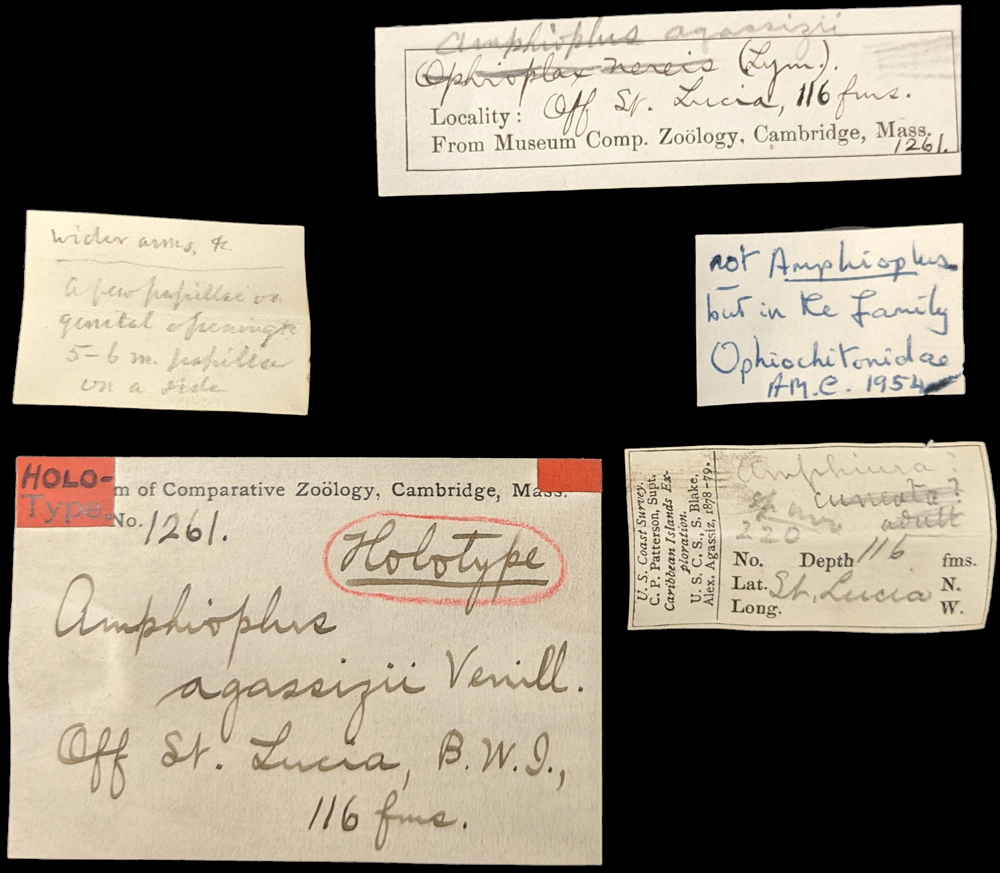 Amphioplus agassizii
Ophioplax nereis (Lym.).
Locality: Off St. Lucia, 116 fms.
From Museum Comp. Zoölogy, Cambridge, Mass.
1261.
wider arms, &.
A few papillae on
genital openings
5-6 m. papillae
on a side
not Amphioplus
but in the family
Ophiochitonidae
A.M.C. 1954
HOLO-
Type.
m of Comparative Zoölogy, Cambridge, Mass.
No. 1261.
Holotype
Amphioplus
agassizii Verrill.
Off St. Lucia, B.W.I.,
116 fms.
U. S. Coast Survey.
C. P. Patterson, Supt.
Caribbean Islands Ex-
ploration.
U. S. C. S. S. Blake,
Alex. Agassiz, 1878-79.
Amphiura?
cuneata?
adult
220
No. Depth 116 fms.
Lat. St. Lucia N.
Long. W.